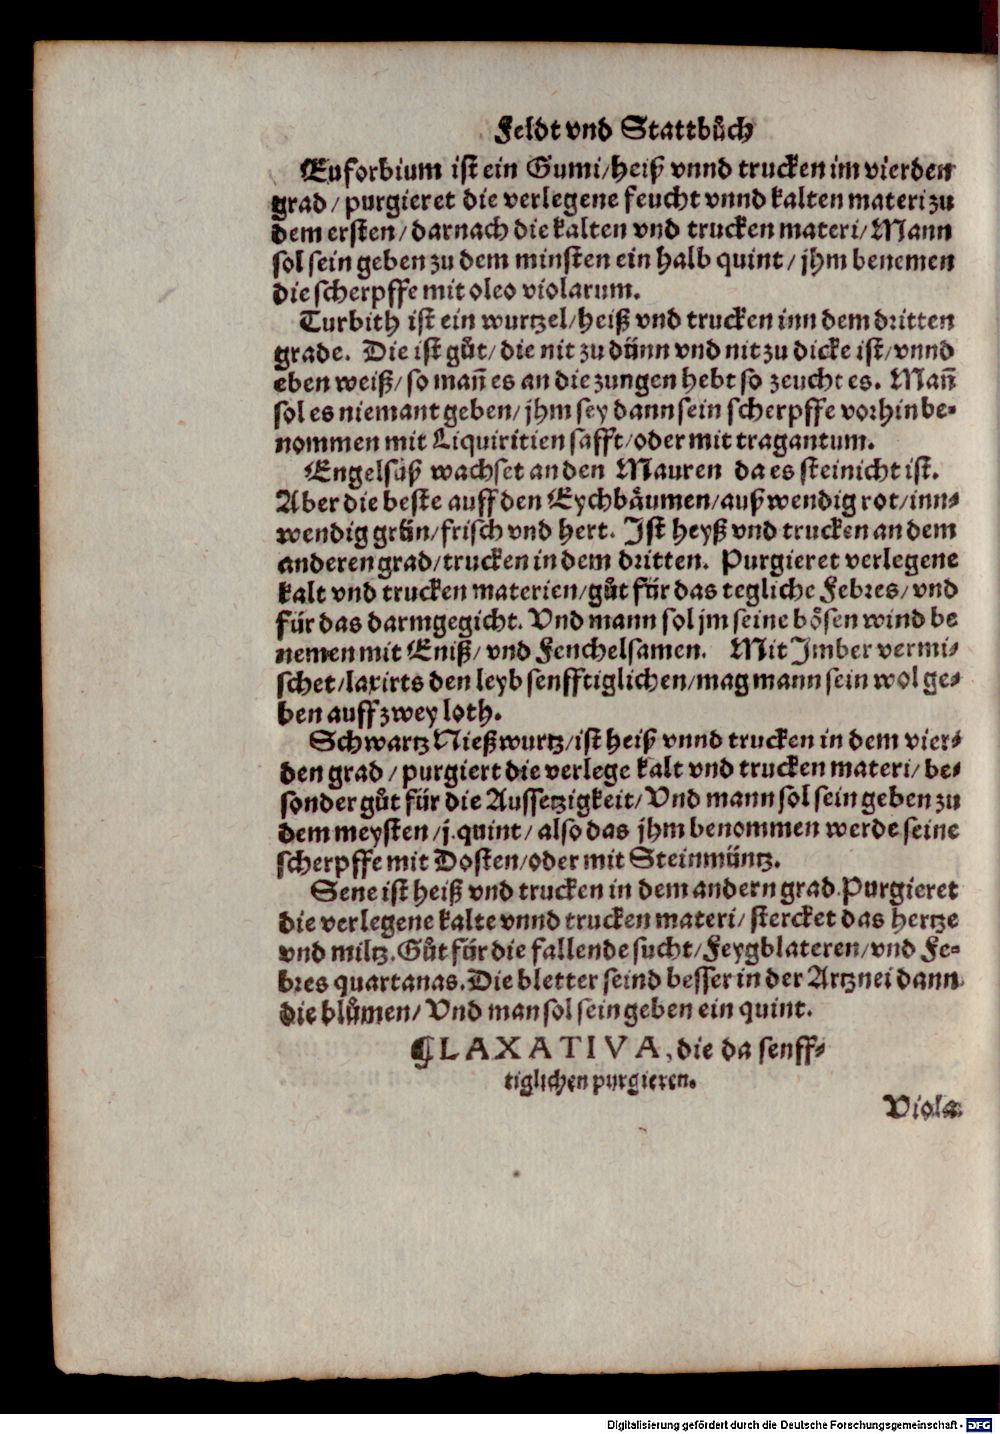 Feldt vnd Stattbůch
Euforbium ist ein Gumi/heiß vnnd trucken im vierden
grad/ purgieret die verlegene feucht vnnd kalten materi zu
dem ersten/ darnach die kalten vnd trucken materi/ Mann
sol sein geben zu dem minsten ein halb quint/ jhm benemen
die scherpffe mit oleo violarum.
Turbith ist ein wurtzel/heiß vnd trucken inn dem dritten
grade. Die ist gůt/ die nit zu dünn vnd nit zu dicke ist/ vnnd
eben weiß/ so mañ es an die zungen hebt so zeucht es. Mañ
sol es niemant geben/ jhm sey dann sein scherpffe vorhin be-
nommen mit Liquiritien safft/oder mit tragantum.
Engelsüß wachset an den Mauren da es steinicht ist.
Aber die beste auff den Eychbäumen/außwendig rot/inn-
wendig grün/frisch vnd hert. Ist heyß vnd trucken an dem
anderen grad/trucken in dem dritten. Purgieret verlegene
kalt vnd trucken materien/gůt für das tegliche Febres/ vnd
für das darmgegicht. Vnd mann sol jm seine bösen wind be
nemen mit Eniß/ vnd Fenchelsamen. Mit Imber vermi-
schet/laxirts den leyb senfftiglichen/mag mann sein wol ge-
ben auff zwey loth.
Schwartz Nießwurtz/ist heiß vnnd trucken in dem vier-
den grad/ purgiert die verlege kalt vnd trucken materi/ be-
sonder gůt für die Aussetzigkeit/ Vnd mann sol sein geben zu
dem meysten/j.quint/ also das jhm benommen werde seine
scherpffe mit Dosten/oder mit Steinmüntz.
Sene ist heiß vnd trucken in dem andern grad.Purgieret
die verlegene kalte vnnd trucken materi/ stercket das hertze
vnd miltz.Gůt für die fallende sucht/Feygblateren/vnd Fe-
bres quartanas.Die bletter seind besser in der Artznei dann
die blůmen/ Vnd man sol sein geben ein quint.
¶LAXATIVA, die da senff-
tiglichen purgieren.
Viola
Digitalisierung gefördert durch die Deutsche Forschungsgemeinschaft - DFG